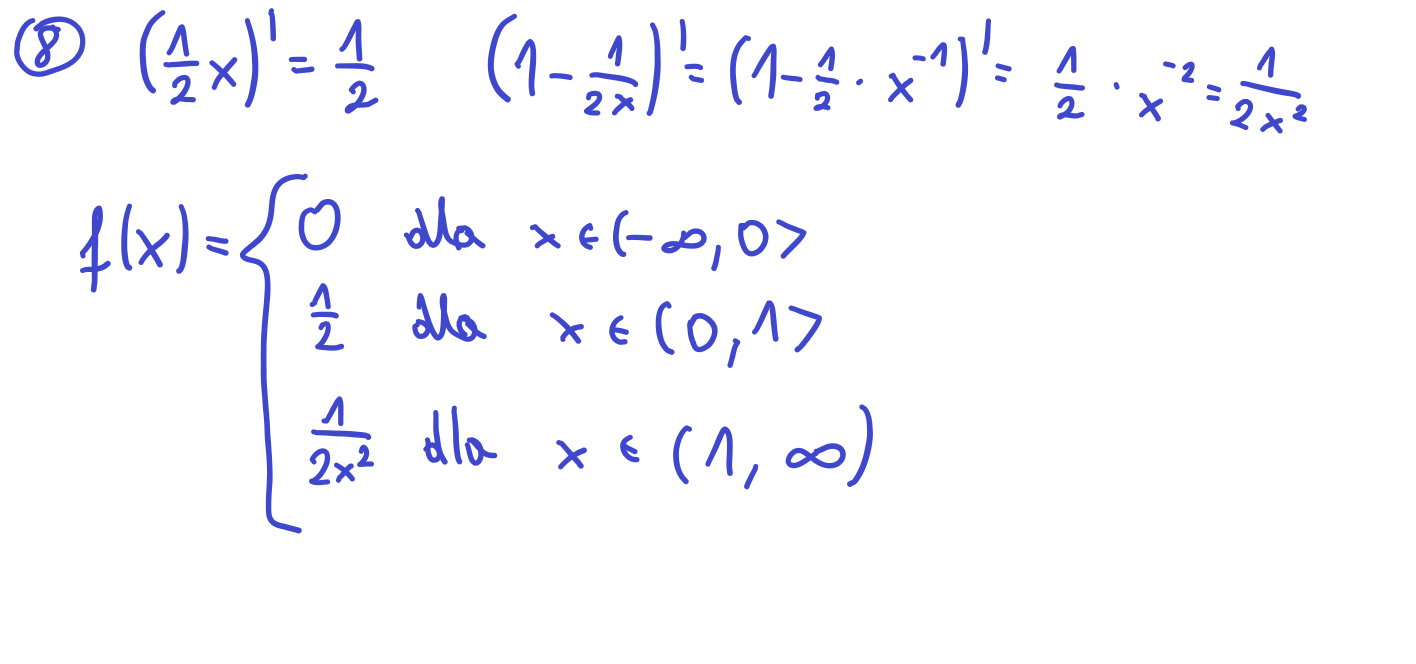 8 (1/2 x)' = 1/2 (1 - 1/2x)' = (1 - 1/2 · x⁻¹)' = 1/2 · x⁻² = 1/2x²
f(x) = { 0 dla x ∈ (-∞, 0>
1/2 dla x ∈ (0, 1>
1/2x² dla x ∈ (1, ∞)